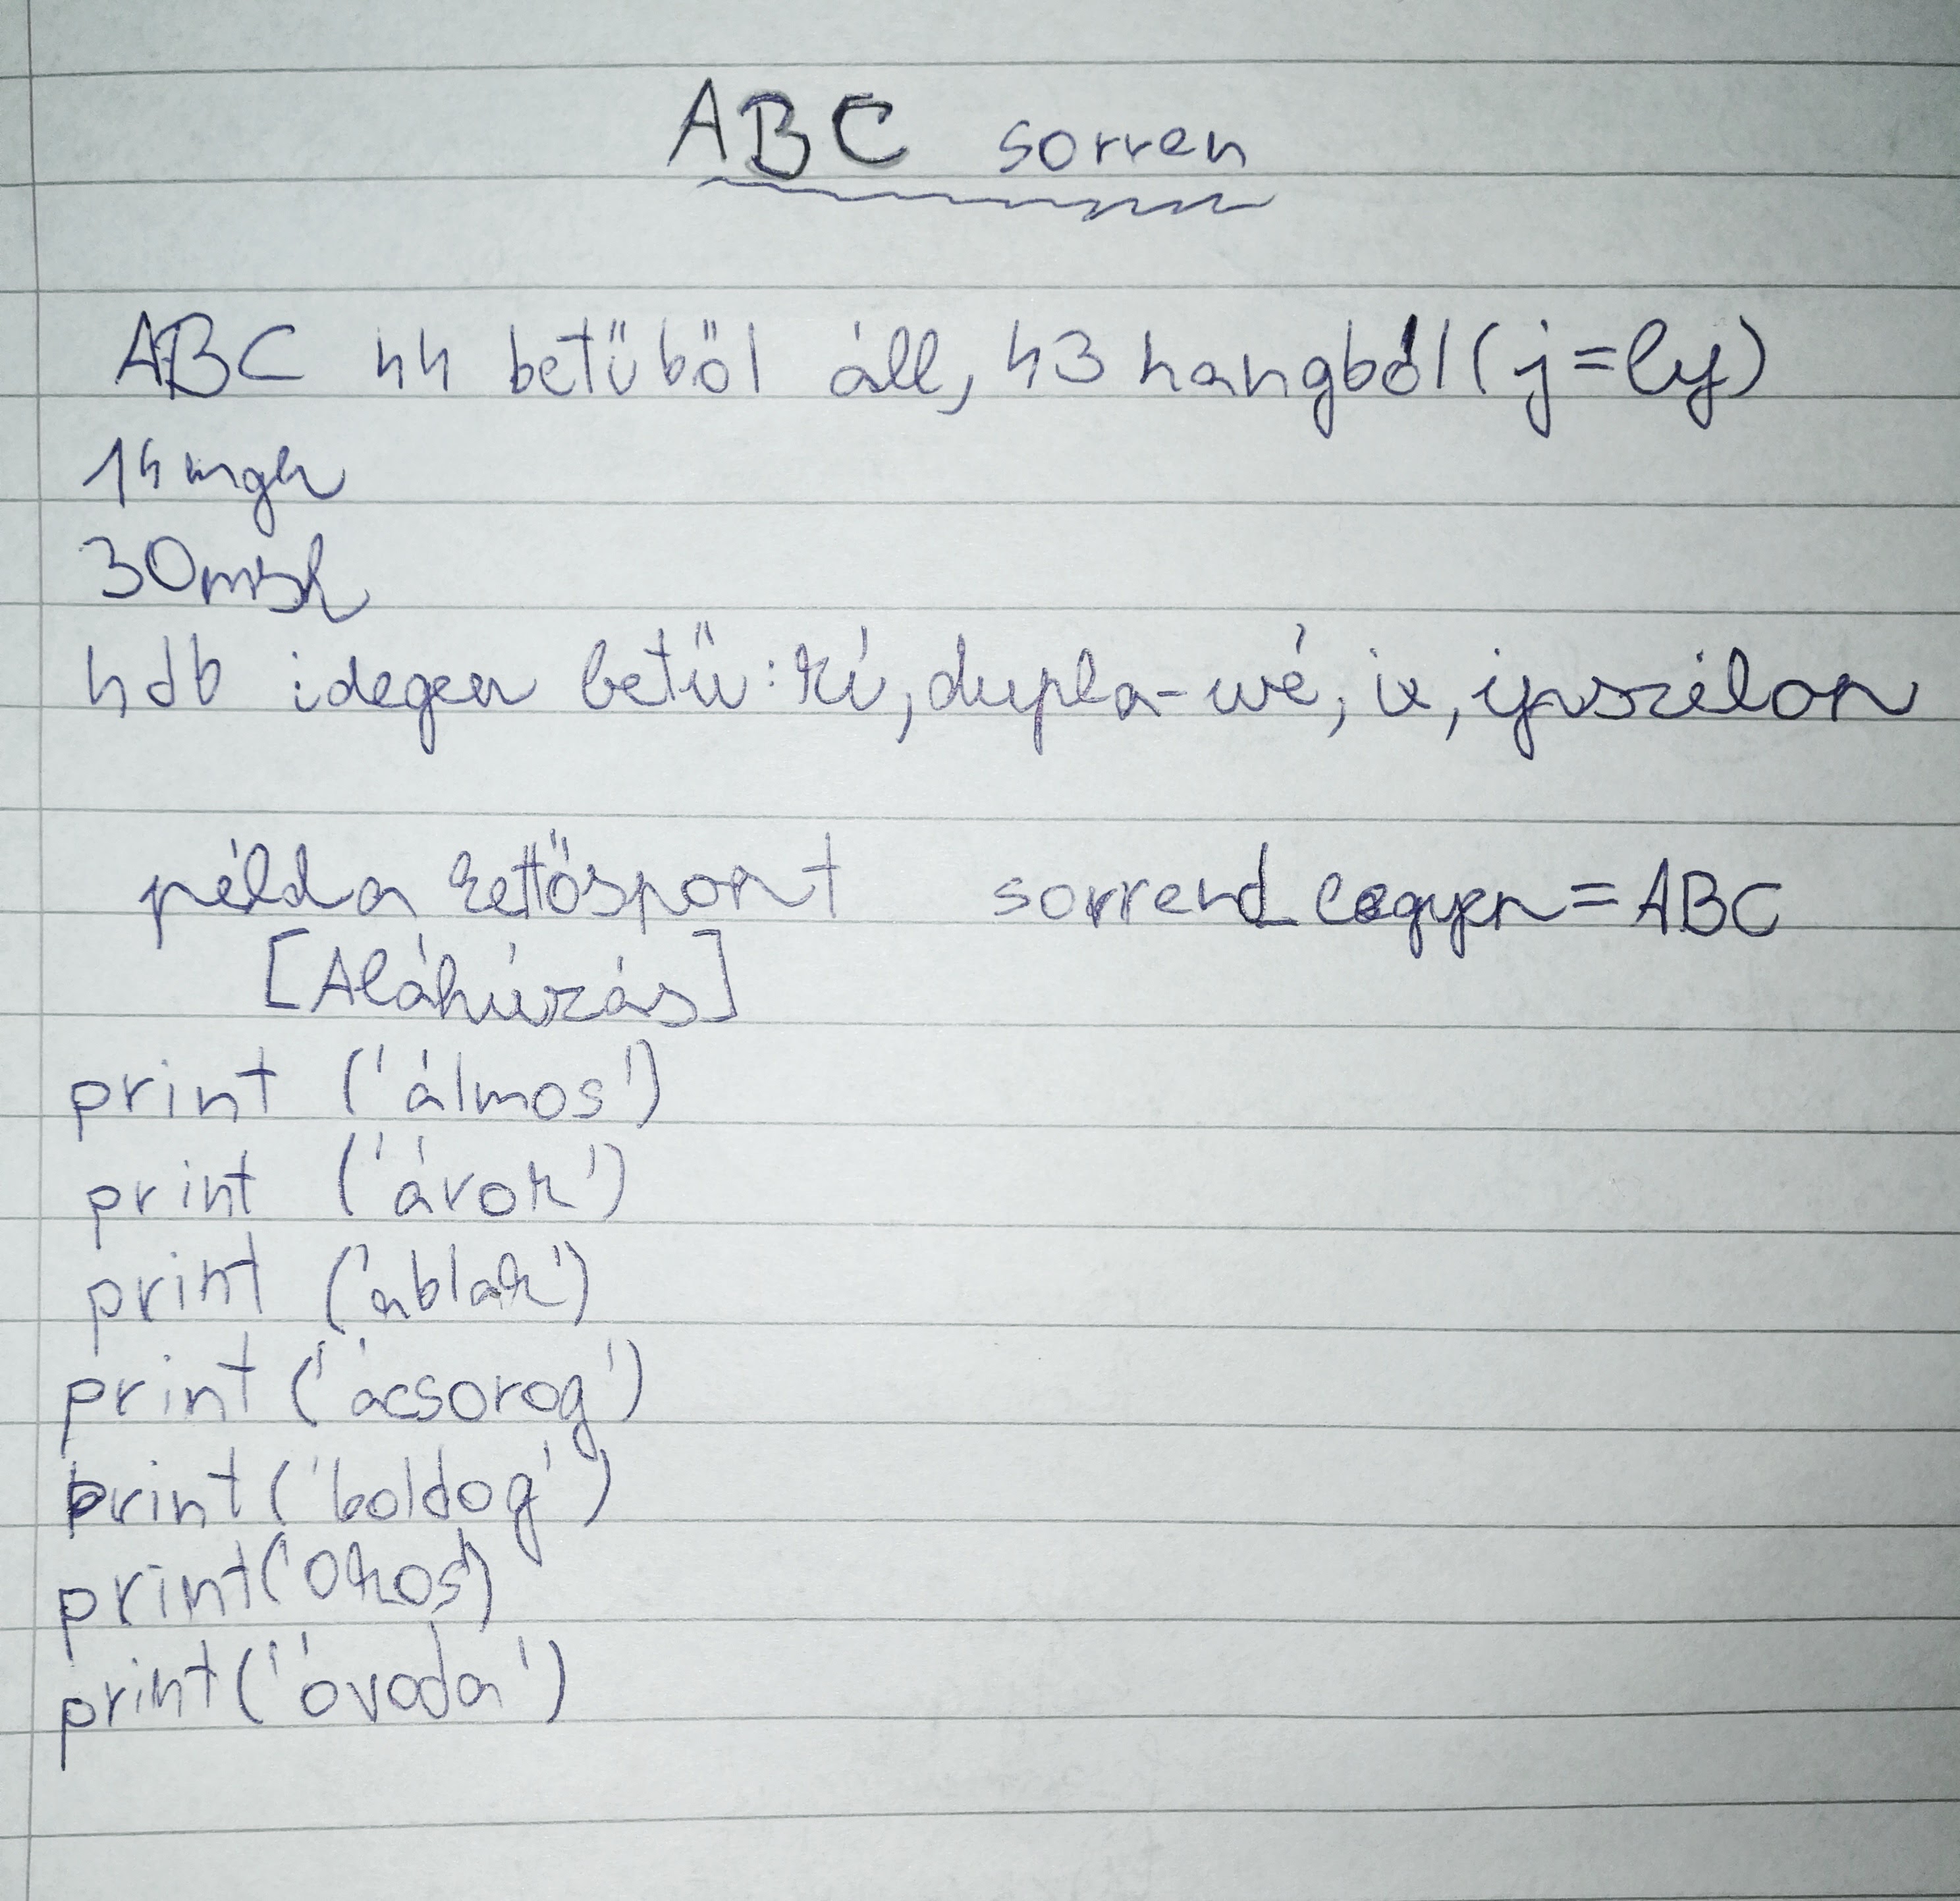 ABC sorren
ABC 44 betűből áll, 43 hangból (j=ly)
14 mgh
30 msh
4db idegen betű: kú, dupla-wé, ix, ipszilon
példa kettőspont sorrend legyen = ABC
[Aláhúzás]
print ('álmos')
print ('árok')
print ('ablak')
print ('ácsorog')
print ('boldog')
print ('okos')
print ('óvoda')